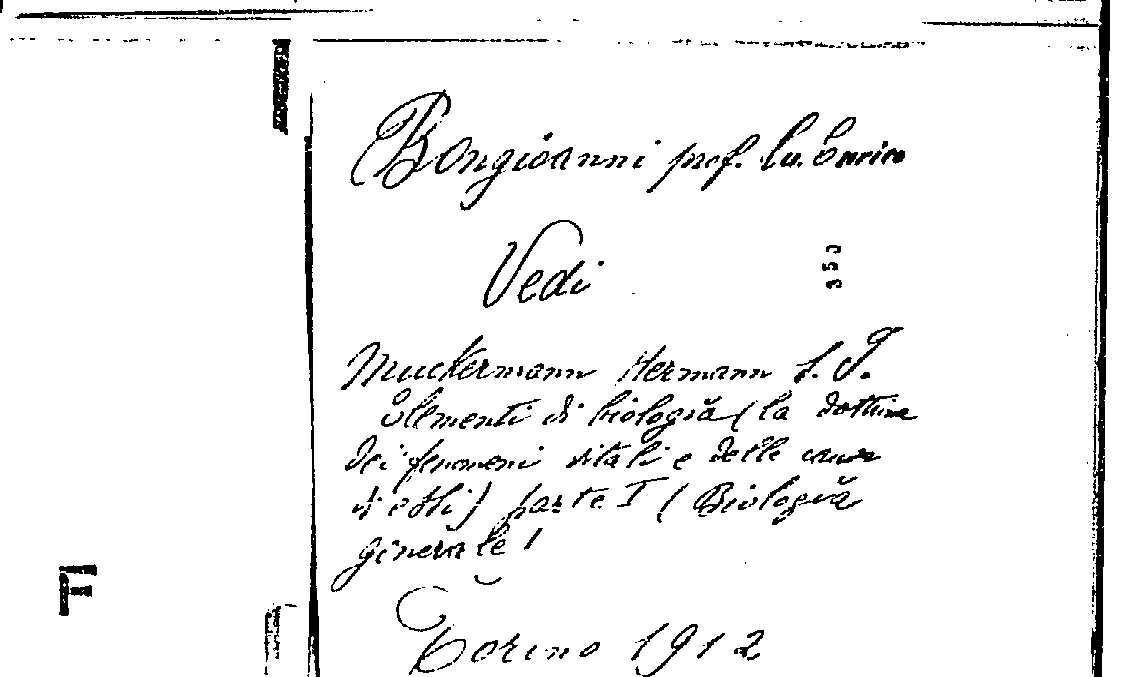 Bongioanni prof. Cu. Enrico
Vedi
353
Muckermann Hermann S. J.
Elementi di biologia (la dottrina
dei fenomeni vitali e delle cause
di essi) parte I (Biologia
generale)
Torino 1912
F